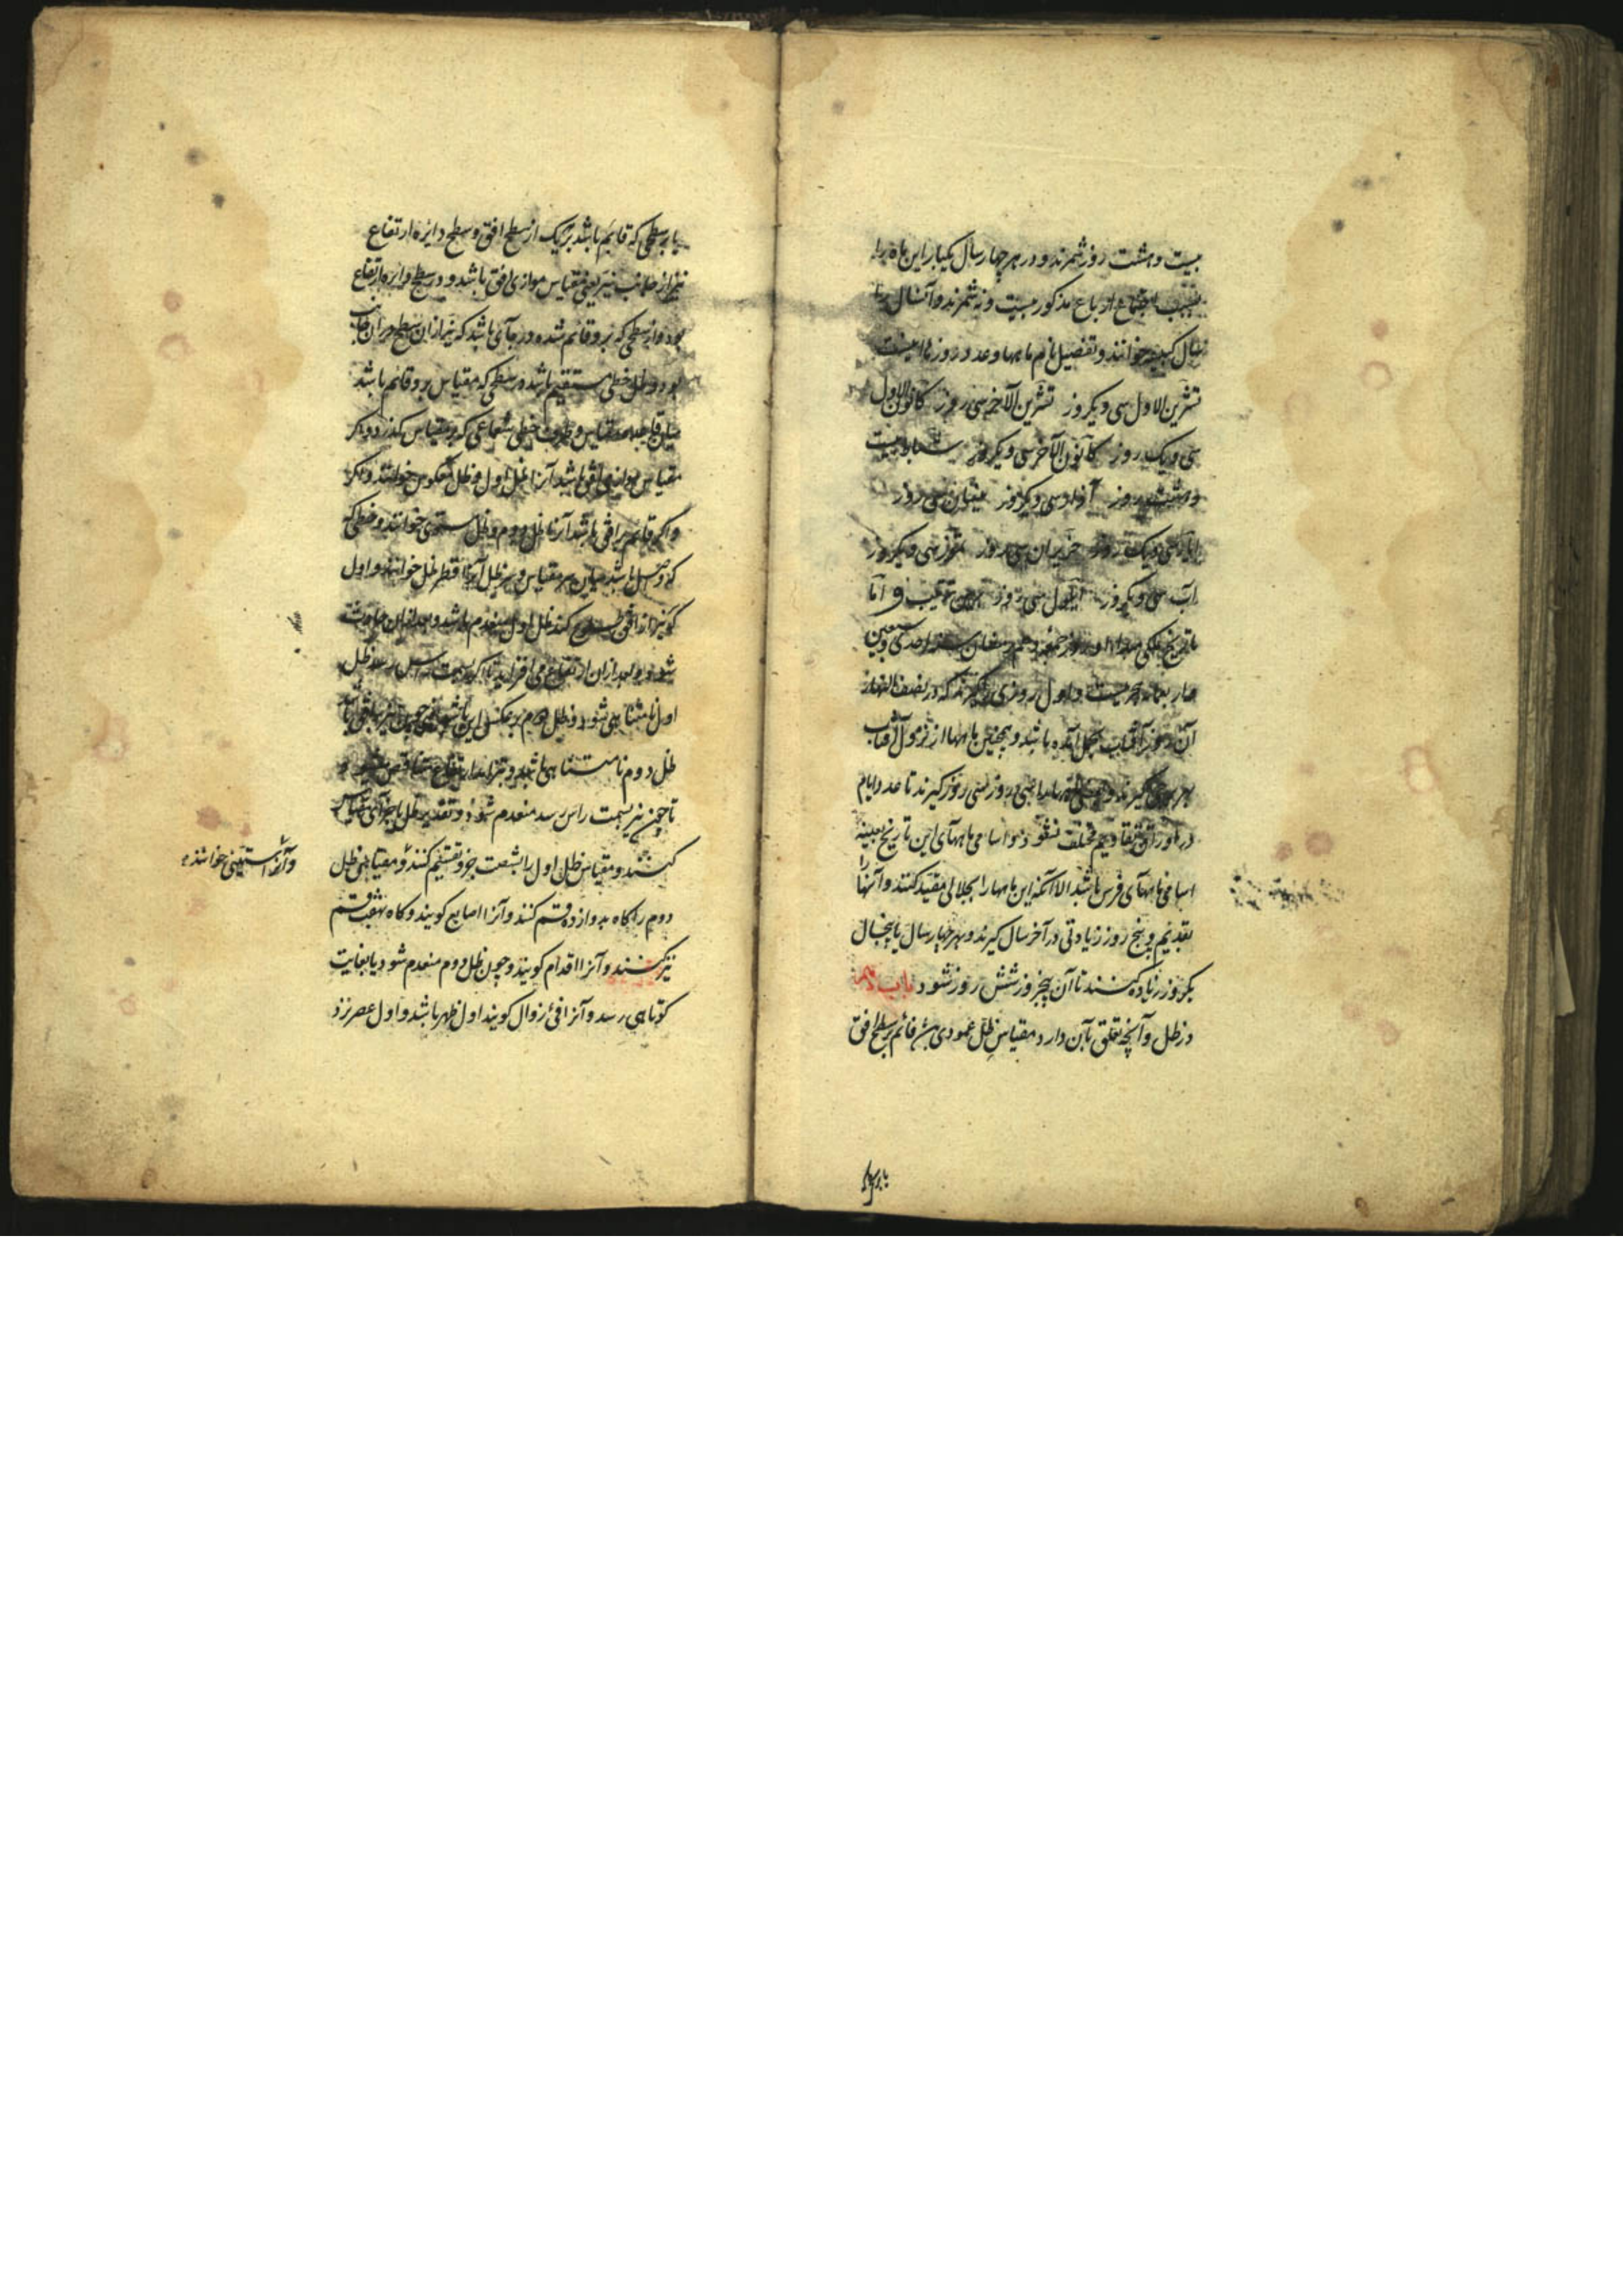 بیست و هشت روز شمرند و در هر چهار سال یکبار این ماه را
بسبب اجتماع ارباع مذکور بیست و نه شمرند و آنسال را
سال کبیسه خوانند و تفصیل نام ماهها و عدد روزها اینست
تشرین الاول سی و یکروز تشرین الآخر سی روز کانون الاول
سی و یک روز کانون الآخر سی و یکروز شباط بیست
و هشت روز آذار سی و یکروز نیسان سی روز
ایار سی و یک روز حزیران سی روز تموز سی و یکروز
آب سی و یکروز ایلول سی روز و اما
تاریخ ملکی روز جمعه دهم رمضان سنه احدی و سبعین
و اربعمائه هجریست و اول روزی را گیرند که در نصف النهار
آن روز آفتاب بحمل آمده باشد و همچنین ماهها از نزول آفتاب
هر برجی گیرند و سی روز گیرند تا عدد ایام
در اوراق تقاویم مختلف نشود و اسامی ماههای این تاریخ بعینه
اسامی ماههای فرس باشد الا آنکه این ماهها را بجلالی مقید کنند و آنها را
بقدیم و پنج روز زیادتی در آخر سال گیرند و بهر چهار سال یا پنجسال
یکروز زیاده کنند تا آن پنجروز شش روز شود باب
در ظل و آنچه تعلق بآن دارد مقیاس ظل عمودی قائم بر سطح افق
یا بر سطحی که قایم باشد بر یک از سطح افق و سطح دایره ارتفاع
نیر از جانب نیر یعنی مقیاس موازی افق باشد و در سطح دایره ارتفاع
بود و از سطحی که برو قائم شده در جای باشد که نیر از ان سطح در ان جانب
بود و ظل خطی مستقیم باشد در سطحی که مقیاس برو قائم باشد
میان قاعده مقیاس و طرف خطی شعاعی که بر سر مقیاس گذرد و اگر
مقیاس موازی افق باشد آنرا ظل اول و ظل معکوس خوانند و اگر
و اگر قائم بر افق باشد آنرا ظل دوم و ظل مستوی خوانند و خطی که
که وصل باشد میان سر مقیاس و سر ظل آنرا قطر ظل خوانند و اول
که نیر از افق طلوع کند ظل اول منعدم باشد و بعد از ان حادث
شود و بعد از ان ارتفاع می افزاید تا که بسمت راس رسد ظل
اول نامتناهی شود و ظل دوم بر عکس این باشد
ظل دوم نامتناهی باشد و بتزاید ارتفاع متناقص
تا چون نیر بسمت راس رسد منعدم شود و تقدیر ظل باجزای مقیاس
کنند و مقیاس ظل اول را بشصت جزو تقسیم کنند و مقیاس ظل
و آنرا ستینی خوانند
دوم را گاه بدوازده قسم کنند و آنرا اصابع گویند و گاه بهفت قسم
نیز کنند و آنرا اقدام گویند و چون ظل دوم منعدم شود یا بغایت
کوتاهی رسد و آنرا فئ زوال گویند اول ظهر باشد و اول عصر نزد